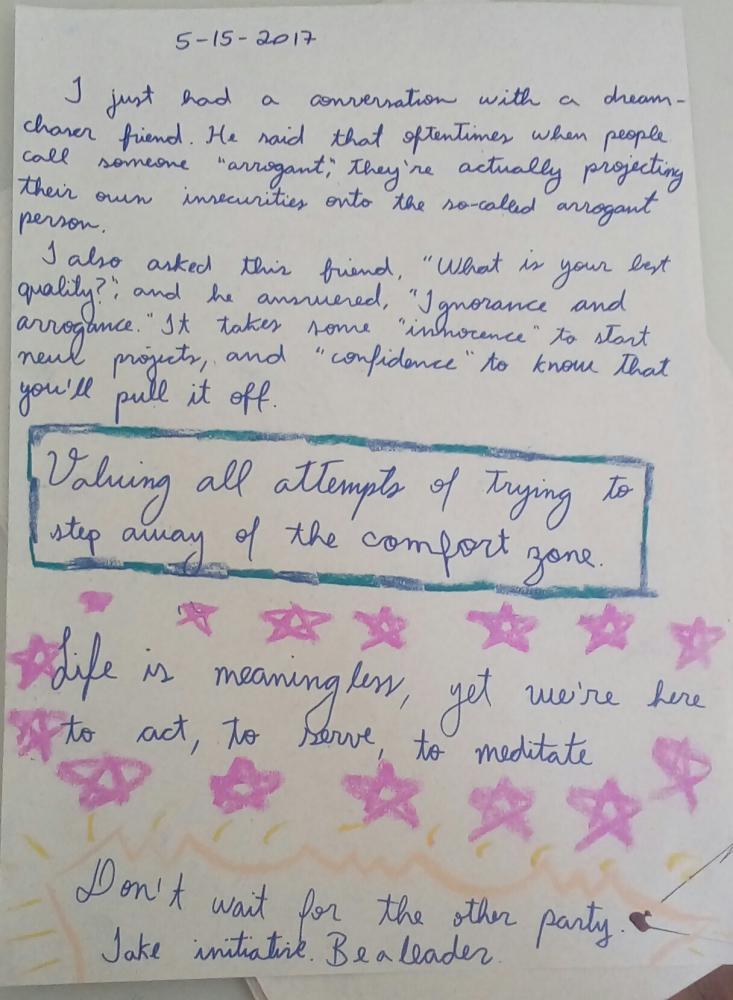 5-15-2017
I just had a conversation with a dream-
chaser friend. He said that oftentimes when people
call someone "arrogant," they're actually projecting
their own insecurities onto the so-called arrogant
person.
I also asked this friend, "What is your best
quality?", and he answered, "Ignorance and
arrogance." It takes some "innocence" to start
new projects, and "confidence" to know that
you'll pull it off.
Valuing all attempts of trying to
step away of the comfort zone.
Life is meaningless, yet we're here
to act, to serve, to meditate
Don't wait for the other party.
Take initiative. Be a leader.